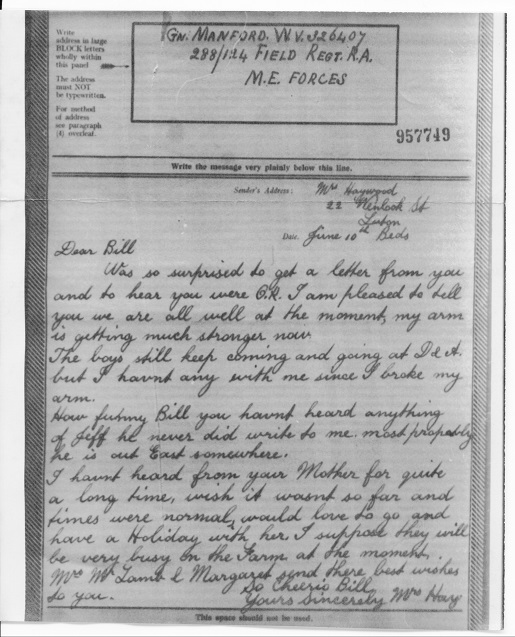 Write
address in large
BLOCK letters
wholly within
this panel
The address
must NOT
be typewritten.
For method
of address
see paragraph
(4) overleaf.
GN. MANFORD. W.V. 926407
288/124 FIELD REGT. R.A.
M.E. FORCES
957749
Write the message very plainly below this line.
Sender's Address: Mrs Haywood
22 Wenlock St
Luton
Date. June 10th Beds
Dear Bill
Was so surprised to get a letter from you
and to hear you were O.K. I am pleased to tell
you we are all well at the moment, my arm
is getting much stronger now.
The boys still keep coming and going at D & A.
but I havnt any with me since I broke my
arm.
How funny Bill you havnt heard anything
of Jeff he never did write to me. most propably
he is out East somewhere.
I havnt heard from your Mother for quite
a long time, wish it wasnt so far and
times were normal, would love to go and
have a Holiday with her, I suppose they will
be very busy on the Farm at the moment.
Mrs Mr Lamb & Margaret send there best wishes
to you. So Cheerio Bill
Yours Sincerely Mrs Hay
This space should not be used.